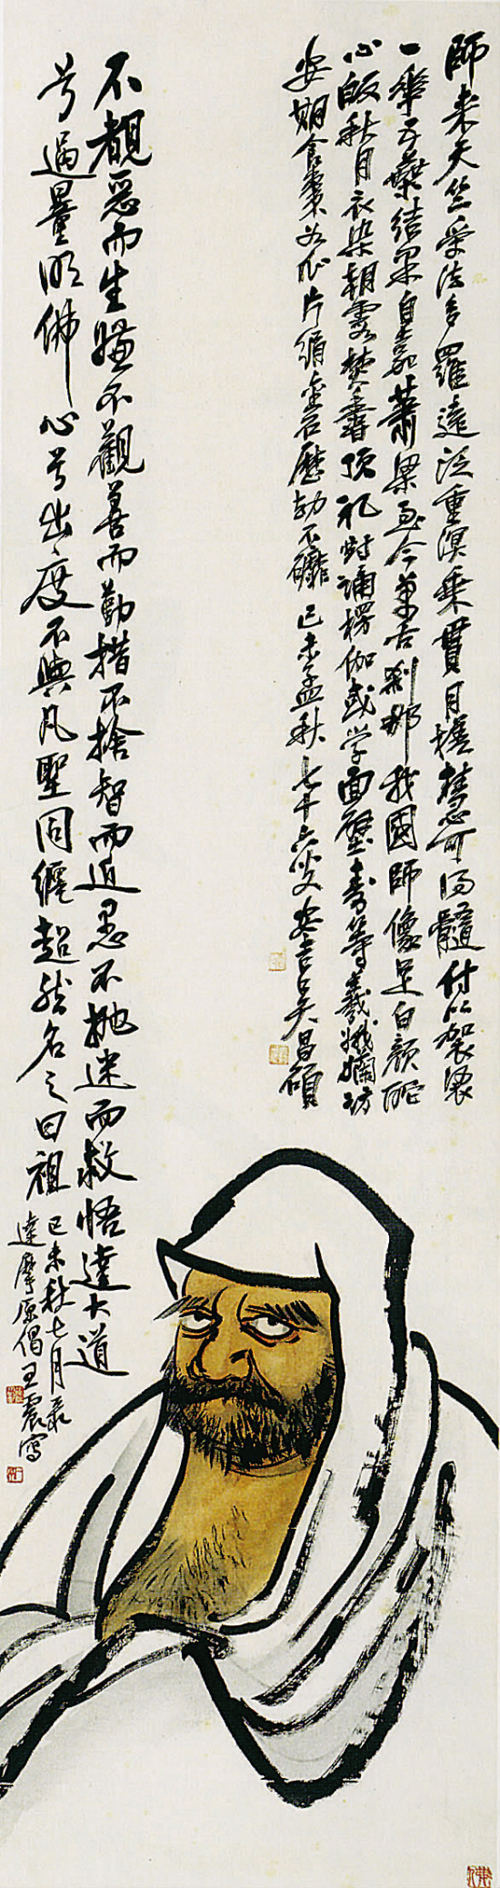 師来天竺受法多羅遠泛重溟乘貫月槎慧可得髓付以袈裟
一華五葉結果自嘉蕭梁至今萬古剎那我國師像足白顏酡
心皈秋月衣染朝霞焚香頂礼時誦楞伽或学面壁壽等羲媧訪
安期食棗如瓜片縑金石歷劫不磷己未孟秋七十六叟安吉吳昌碩
不覩惡而生嫌不觀善而勤措不捨智而近愚不拋迷而救悟達大道
兮過量明佛心兮出度不與凡聖同纏超然名之曰祖
己未秋七月录
達摩原偈王震寫